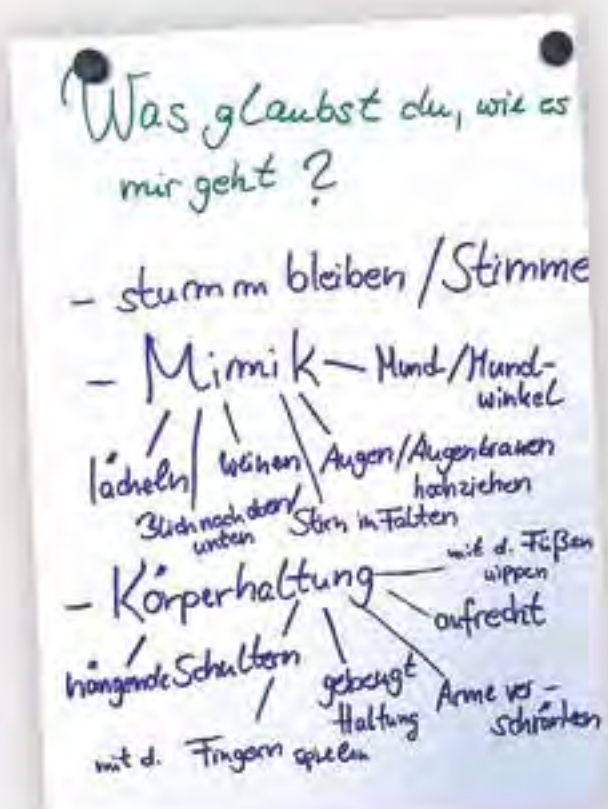 Was glaubst du, wie es
mir geht?
- stumm bleiben / Stimme
- Mimik
Mund/Mund-
winkel
lächeln
weinen
Augen/Augenbrauen
hochziehen
Blick nach oben/
unten
Stirn in Falten
- Körperhaltung
mit d. Füßen
wippen
aufrecht
hängende Schultern
gebeugt
Haltung
Arme ver-
schränken
mit d. Fingern spielen